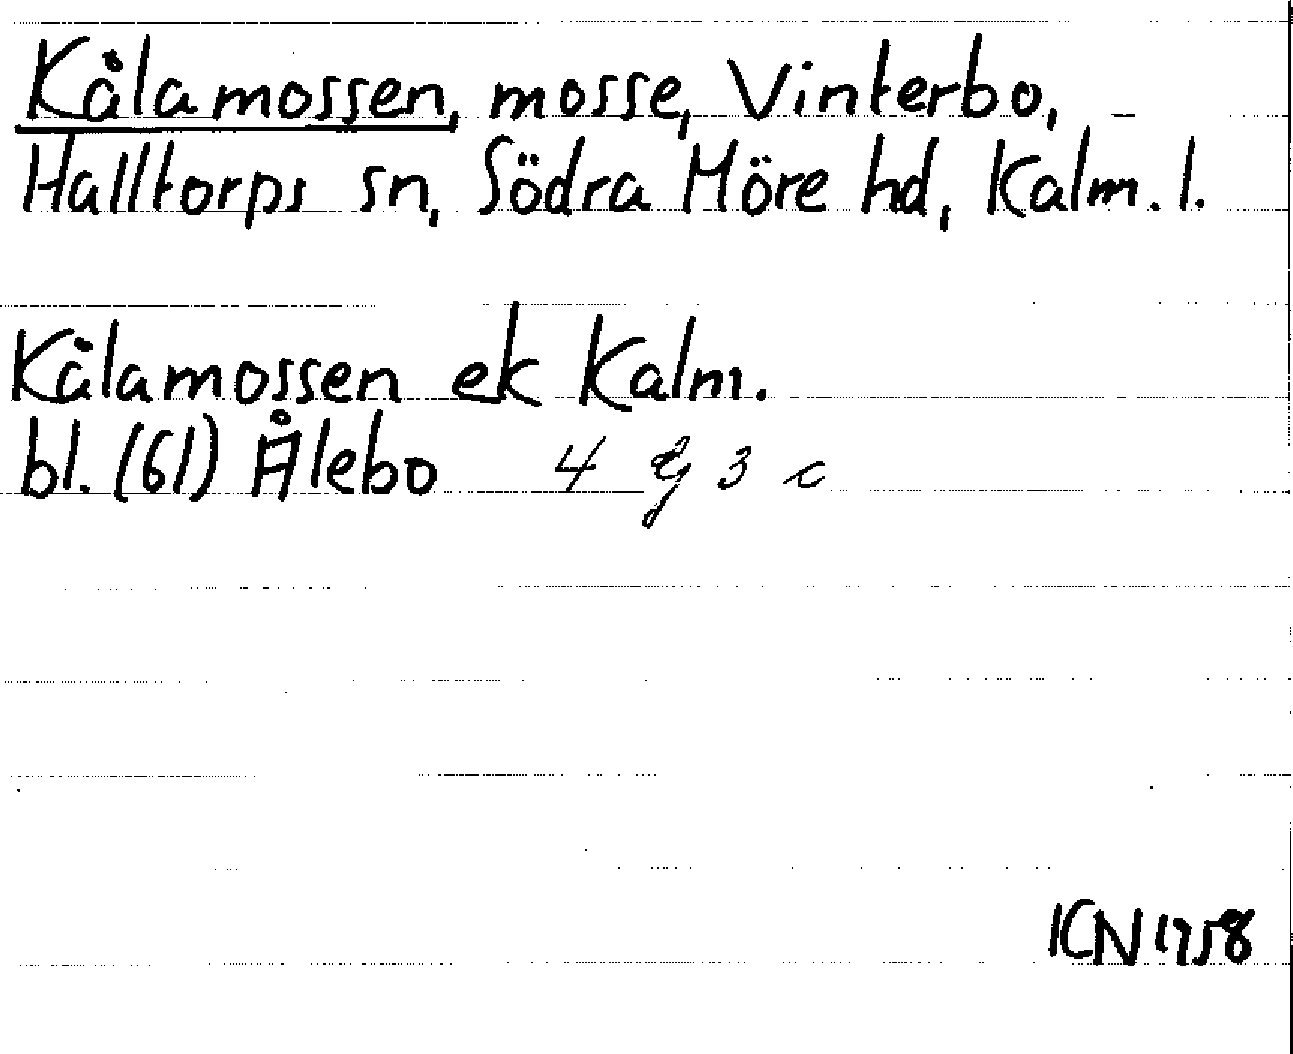 Kålamossen, mosse, Vinterbo,
Halltorps sn, Södra Möre hd, Kalm. l.
Kålamossen ek Kalm.
bl. (61) Ålebo 4 g 3 c
KN 1958